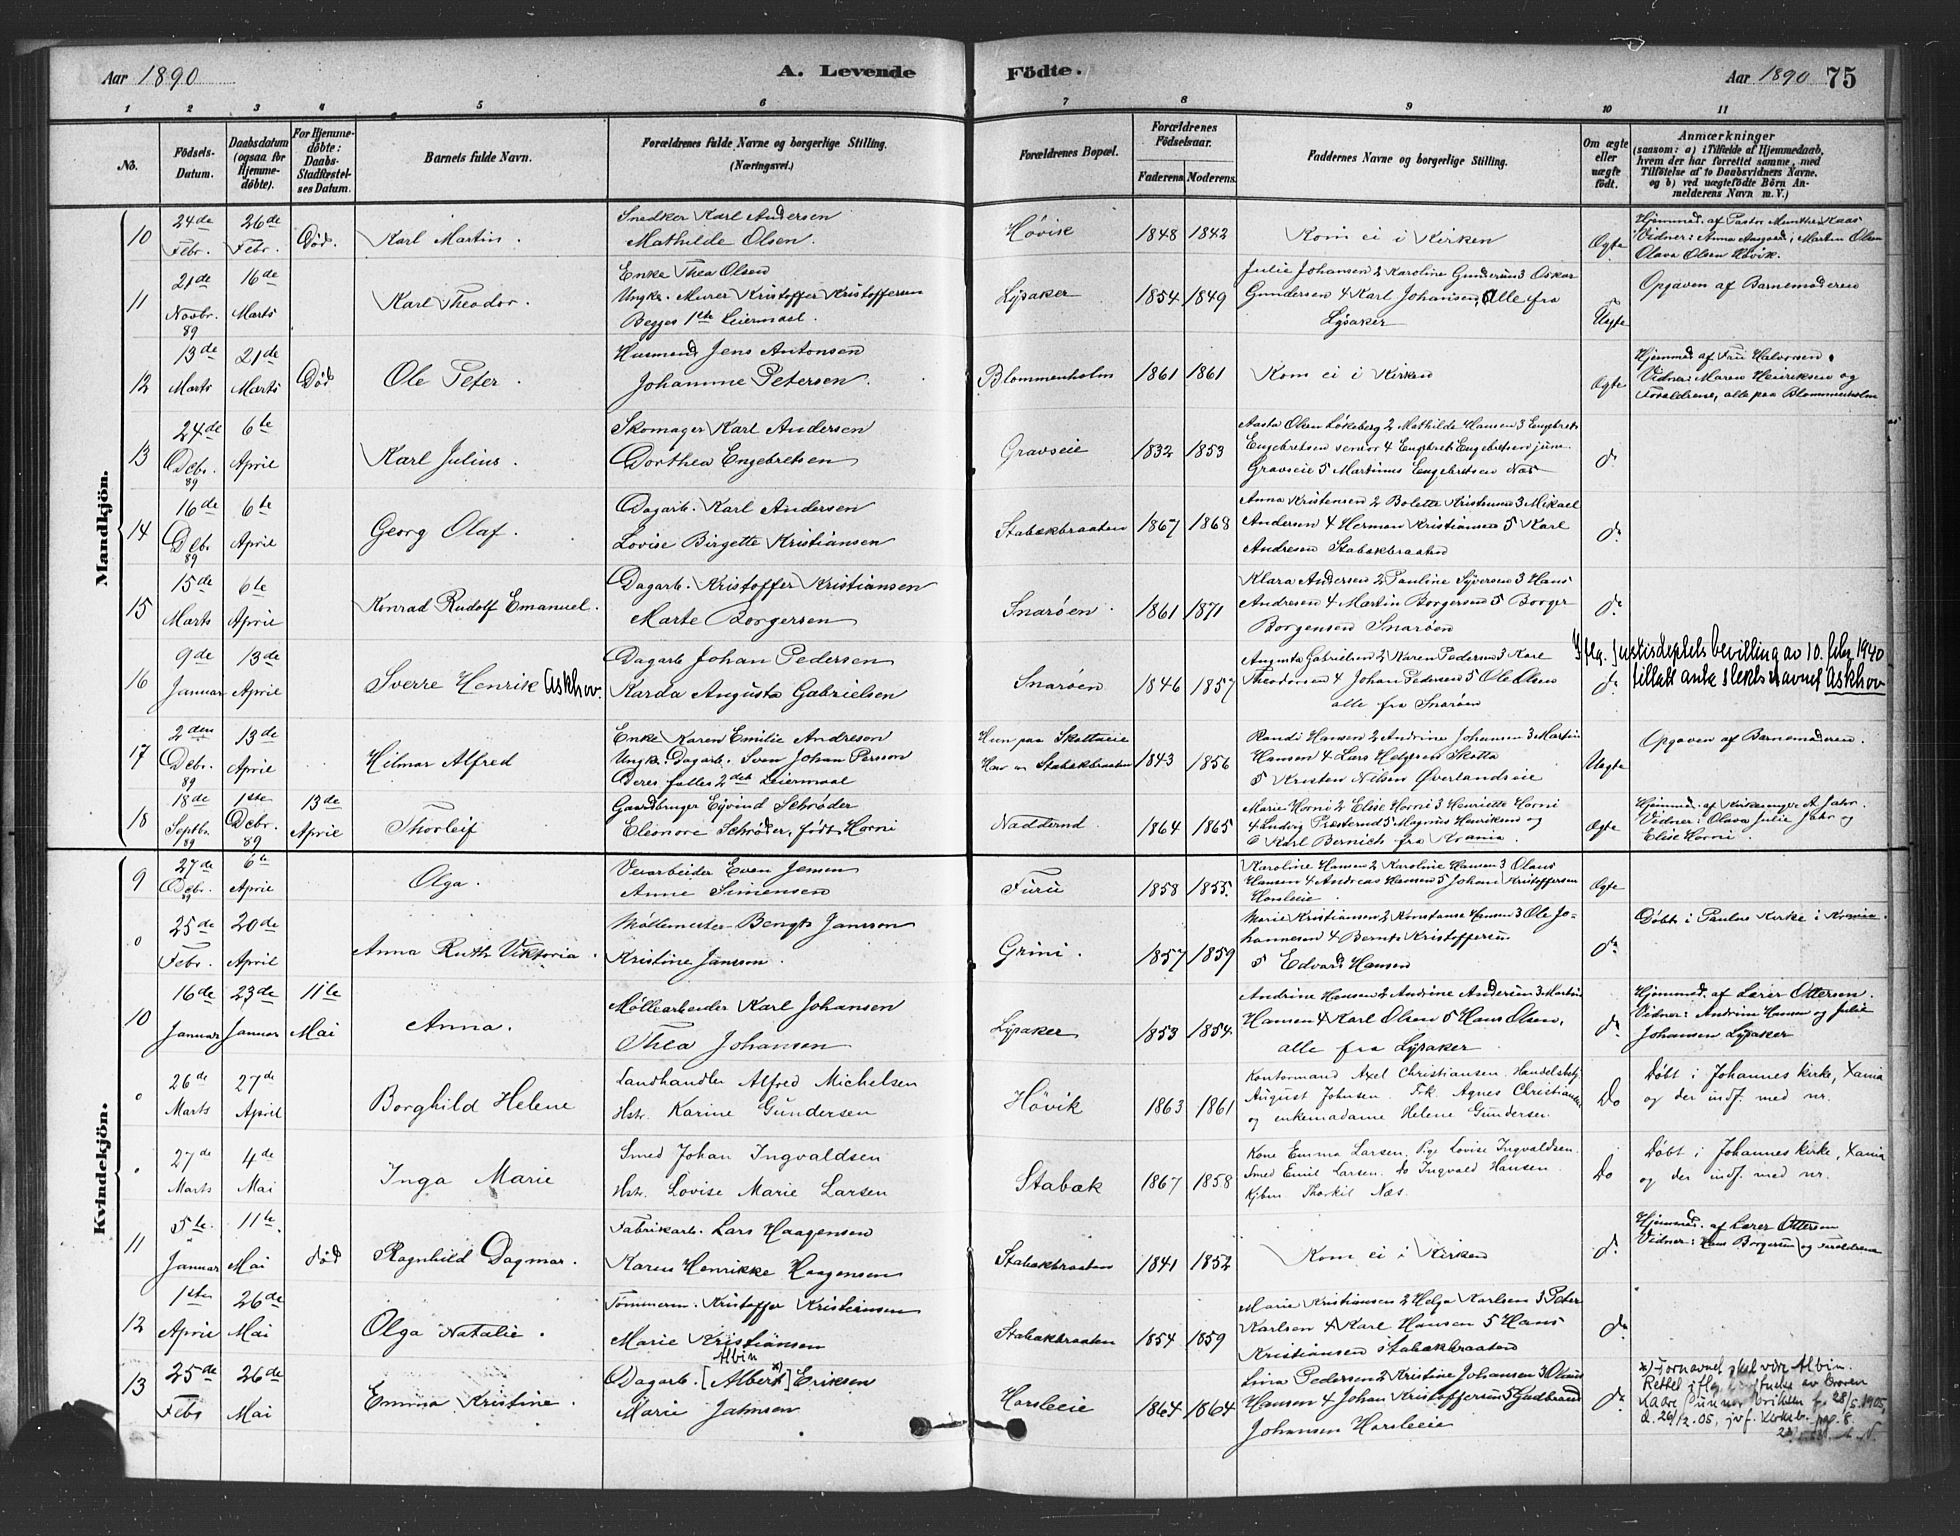 Aar 1890
A. Levende
Födte.
Aar 1890 75
1 2 3 4 5 6 7 8 9 10 11
No.
Födsels-
Datum.
Daabsdatum
(ogsaa for
Hjemme-
döbte).
For Hjemme-
döbte:
Daabs-
Stadfæstel-
ses Datum.
Barnets fulde Navn.
Forældrenes fulde Navne og borgerlige Stilling.
(Næringsvei.)
Forældrenes Bopæl.
Forældrenes
Födselsaar.
Faderens. Moderens.
Faddernes Navne og borgerlige Stilling.
Om ægte
eller
uægte
födt.
Anmærkninger
(saasom: a) i Tilfælde af Hjemmedaab,
hvem der har forrettet samme, med
Tilföielse af to Daabsvidners Navne,
og b) ved uægtefödte Börn An-
melderens Navn m. V.)
Mandkjön.
10
24de
Febr.
26de
Febr.
Død.
Karl Martin.
Snedker Karl Andersen
Mathilde Olsen.
Høvik
1848 1842
Kom ei i Kirken
Ægte
Hjemmed. af Pastor Munthe Kaas
Vidner: Anna Aagaard, Martin Olsen
Olava Olsen Høvik.
11
21de
Novbr.
89
16de
Marts
Karl Theodor.
Enke Thea Olsen
Ungk. Murer Kristoffer Kristoffersen
Begges 1ste Leiermaal.
Lysaker
1854 1849
Julie Johansen 2 Karoline Gundersen 3 Oskar
Gundersen 4 Karl Johansen, Alle fra
Lysaker
Uægte
Opgaven af Barnemoderen
12
13de
Marts
21de
Marts
Død
Ole Peter.
Husmand Jens Antonsen
Johanne Petersen.
Blommenholm
1861 1861
Kom ei i Kirken
Ægte
Hjemmed af Fru Halvorsen.
Vidner: Maren Henriksen og
Forældrene, alle paa Blommenholm
13
24de
Debr.
89
6te
April
Karl Julius.
Skomager Karl Andersen
Dorthea Engebretsen
Gravseie
1832 1853
Aasta Olsen Løkeberg 2 Mathilde Hansen 3 Engebret
Engebretsen senior 4 Engebret Engebretsen jun.
Gravseie 5 Martinus Engebretsen Næs
do
14
16de
Debr.
89
6te
April
Georg Olaf.
Dagarb. Karl Andersen
Lovise Birgette Kristiansen
Stabækbraaten
1867 1868
Anna Kristensen 2 Bolette Kristensen 3 Mikael
Andersen 4 Herman Kristiansen 5 Karl
Andresen Stabækbraaten
do
15
15de
Marts
6te
April
Konrad Rudolf Emanuel.
Dagarb. Kristoffer Kristiansen
Marte Borgersen
Snarøen.
1861 1871
Klara Andersen 2 Pauline Syversen 3 Hans
Andresen 4 Martin Borgersen 5 Borger
Borgersen Snarøen
do
16
9de
Januar
13de
April
Sverre Henrik Askhov.
Dagarb Johan Pedersen
Karda Angusta Gabrielsen
Snarøen
1846 1857
Augusta Gabrielsen 2 Karen Pedersen 3 Karl
Theodorsen 4 Johan Pedersen 5 Ole Olsen
alle fra Snarøen
do
Iflg. Justisdeptets bevilling av 10. febr 1940
tillatt anta slektsnavnet Askhov
17
2den
Debr.
89
13de
April
Hilmar Alfred
Enke Karen Emilie Andreson
Ungk. Dagarb. Sven Johan Persson
Deres fælles 2det Leiermaal
Hun paa Skottaeie
Han Stabækbraaten
1843 1856
Randi Hansen 2 Andrine Johansen 3 Martin
Hansen 4 Lars Helgesen Skotta
5 Kristen Nilsen Øverlandseie
Uægte
Opgaven af Barnemoderen.
18
18de
Septbr.
89
1ste
Debr.
89
13de
April
Thorleif
Gaardbruger Ejvind Schrøder
Eleonore Schrøder, født Horni
Nadderud.
1864 1865
Marie Horni 2 Elise Horni 3 Henriette Horni
4 Ludvig Præsterud 5 Magnus Henriksen og
6 Karl Bernich fra Krania
Ægte
Hjemmed. af Kirkesanger A Jahr.
Vidner: Olava Julie Jahr og
Elise Horni.
Kvindekjön.
9
27de
Debr.
89
6te
April
Olga.
Veiarbeider Even Jensen
Anne Simensen
Furu
1858 1855.
Karoline Hansen 2 Karoline Hansen 3 Olaus
Hansen 4 Andreas Hansen 5 Johan Kristoffersen
Horsleeie
Ægte
0
25de
Febr.
20de
April
Anna Ruth Viktoria.
Møllemester Bengt Jansson
Kristine Jansson.
Grini.
1857 1859
Marie Kristiansen 2 Konstanse Hansen 3 Ole Jo-
hannesen 4 Bernt Kristoffersen
5 Edvard Hansen
do
Døbt i Paulus Kirke i Krania.
10
16de
Januar
23de
Januar
11te
Mai
Anna.
Møllearbeider Karl Johansen
Thea Johansen
Lysaker
1853 1854
Andrine Hansen 2 Andrine Andersen 3 Martin
Hansen 4 Karl Olsen 5 Hans Olsen,
alle fra Lysaker
do
Hjemmed. af Lærer Ottersen.
Vidner: Andrine Hansen og Julie
Johansen Lysaker
0
26de
Marts
27de
April
Borghild Helene
Landhandler Alfred Michelsen
Hstr. Karine Gundersen
Høvik
1863 1861
Kontormand Axel Christiansen. Handelsbetj
August Johnsen. Frk. Agnes Christiansen
og enkemadame Helene Gundersen
Do
Døbt i Johannes kirke, Xania
og der indf. med nr.
0
27de
Marts
4de
Mai
Inga Marie
Smed Johan Ingvaldsen
Hstr. Lovise Marie Larsen
Stabæk
1867 1858
Kone Emma Larsen. Pige Lovise Ingvaldsen.
Smed Emil Larsen. Do Ingvald Hansen.
Kjbm. Thorkil Næs.
Do
Døbt i Johannes kirke, Xania
og der indf. med nr.
11
5te
Januar
11te
Mai
død
Ragnhild Dagmar.
Fabrikarb. Lars Haagensen
Karen Henrikke Haagensen
Stabækbraaten
1841 1852
Kom ei i Kirken
do
Hjemmed. af Lærer Ottersen
Vidner: Hans Borgersen og Forældrene
12
1ste
April
26de
Mai
Olga Natalie.
Tømmerm. Kristoffer Kristiansen
Marie Kristiansen
Stabækbraaten
1854 1859
Marie Kristiansen 2 Helga Karlsen 3 Peter
Karlsen 4 Karl Hansen 5 Hans
Kristiansen Stabækbraaten
do
13
25de
Febr
26de
Mai
Emma Kristine.
Albin
Dagarb. [Albert x)] Eriksen
Marie Jahnsen
Horsleeie
1864 1864
Lina Pedersen 2 Kristine Johansen 3 Olaus
Hansen 4 Johan Kristoffersen 5 Gudbrand
Johansen Horsleeie
do
x) Fornavnet skal være Albin.
Rettet iflg. av broren
Kaare Gunnar Eriksen f. 28/5 1905,
d. 26/12.05, jvf. Kirkeb. pag. 8.